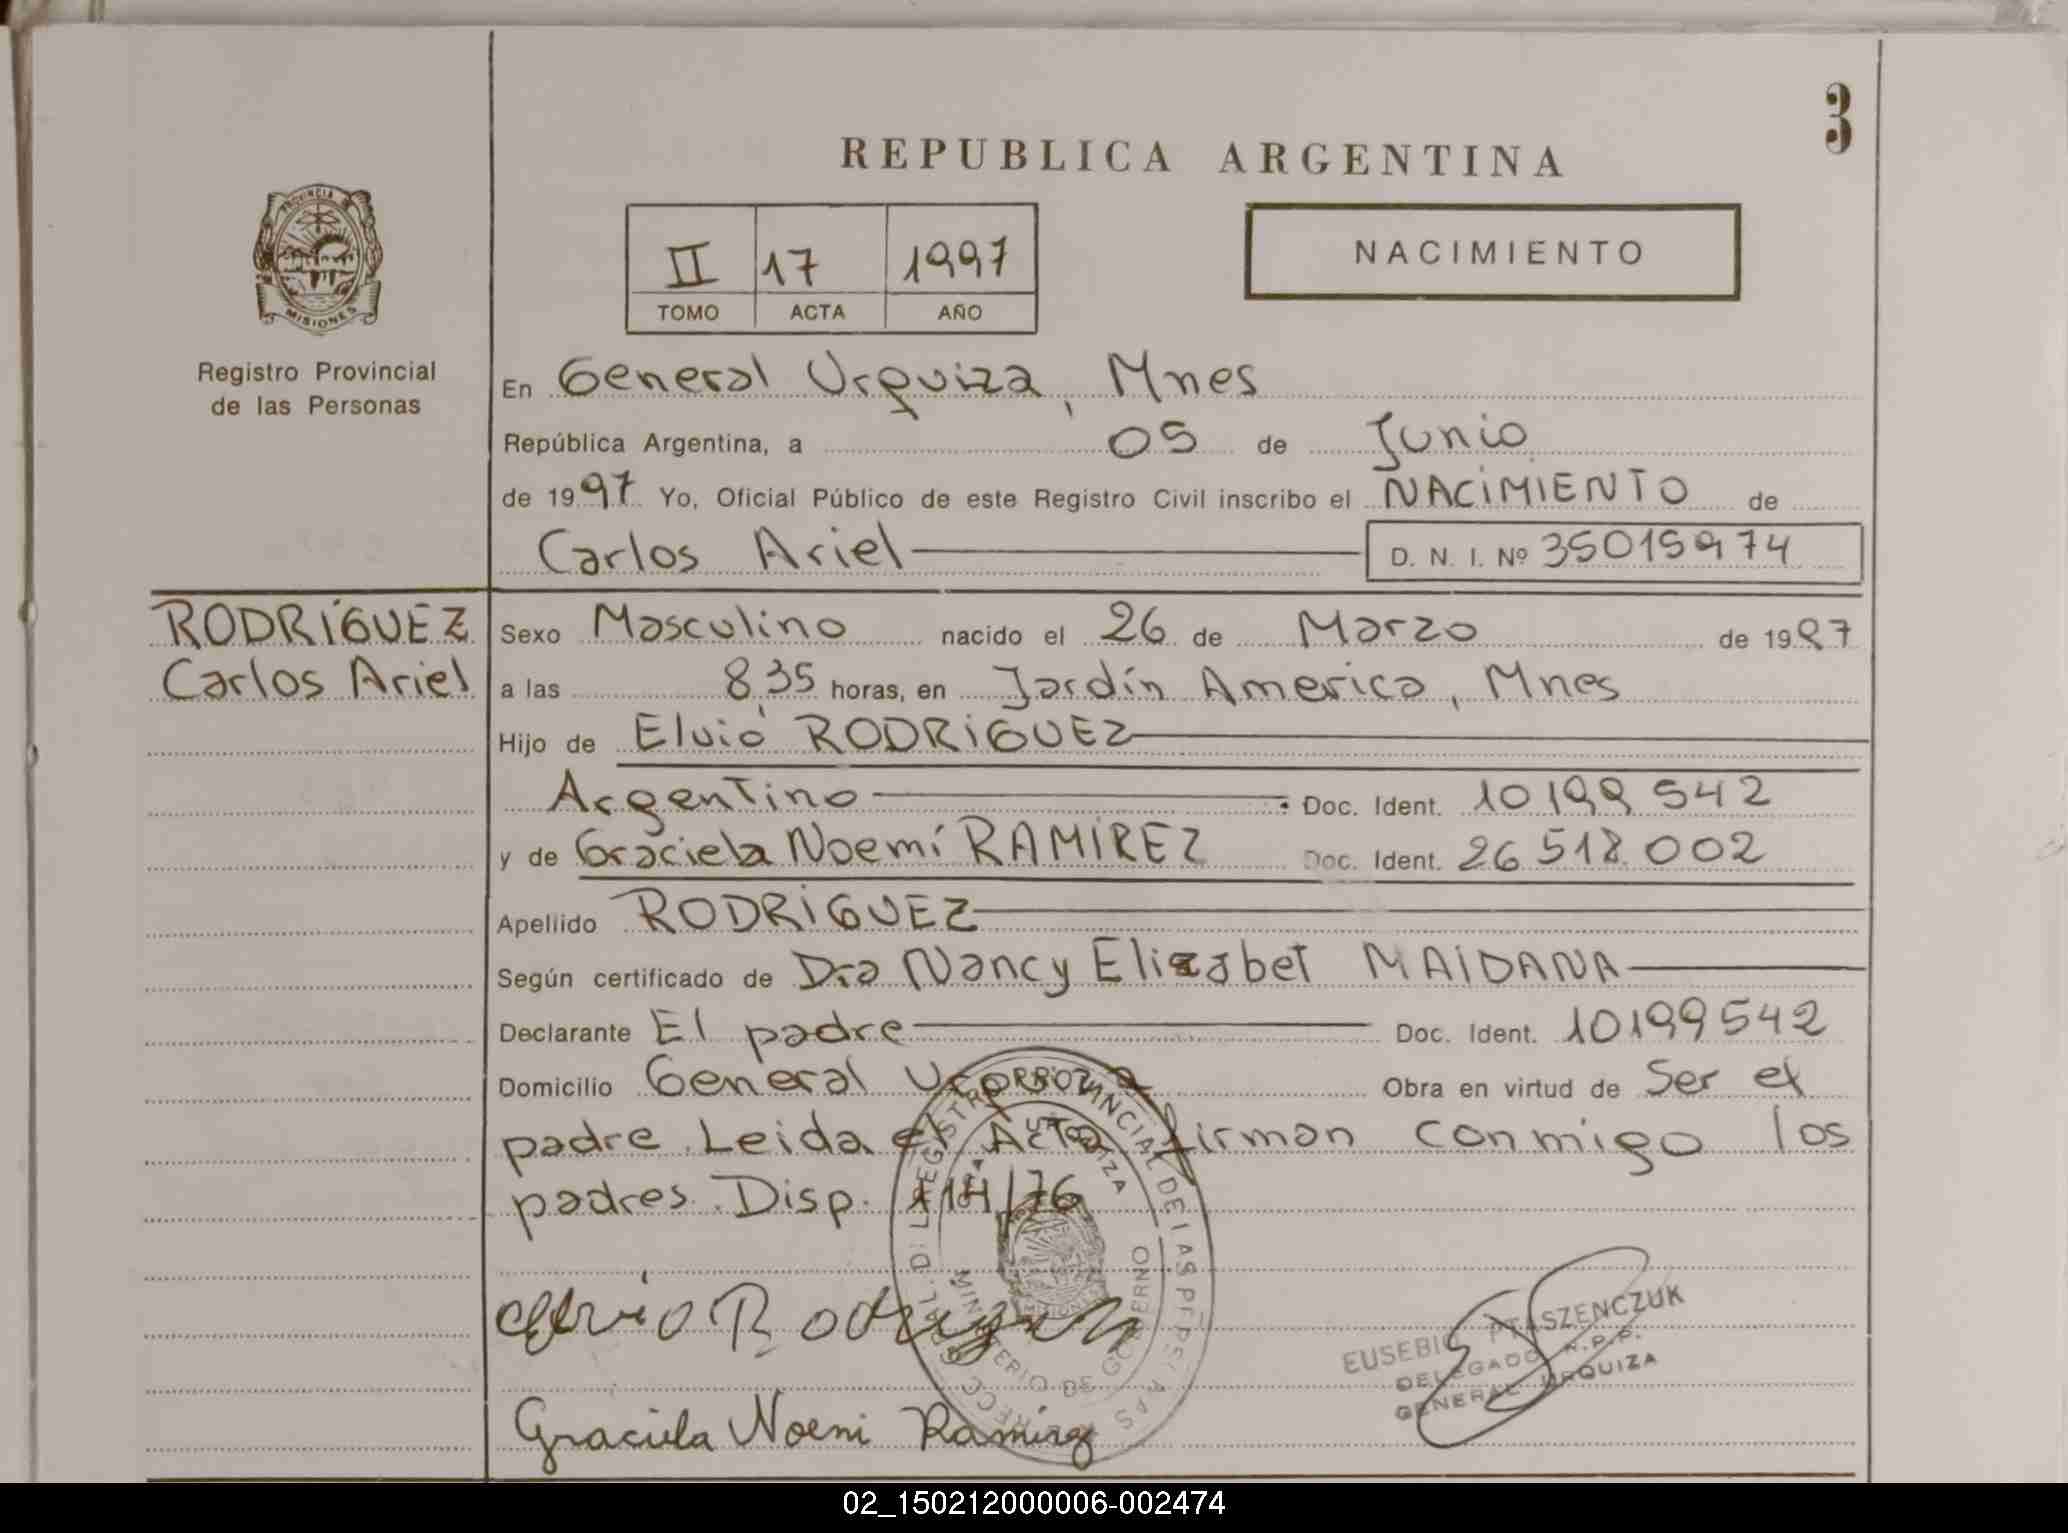 3
REPUBLICA ARGENTINA
PROVINCIA DE
MISIONES
II 17 1997
TOMO ACTA AÑO
NACIMIENTO
Registro Provincial
de las Personas
En General Urquiza, Mnes
República Argentina, a 05 de Junio
de 1997 Yo, Oficial Público de este Registro Civil inscribo el NACIMIENTO de
Carlos Ariel D. N. I. Nº 35015974
RODRIGUEZ
Carlos Ariel
Sexo Masculino nacido el 26 de Marzo de 1997
a las 8,35 horas, en Jardín America, Mnes
Hijo de Elvio RODRIGUEZ
Argentino Doc. Ident. 10199542
y de Graciela Noemí RAMIREZ Doc. Ident. 26.518.002
Apellido RODRIGUEZ
Según certificado de Dra Nancy Elizabet MAIDANA
Declarante El padre Doc. Ident. 10199542
Domicilio General Urquiza Obra en virtud de Ser el
padre. Leida el Acta firman conmigo los
padres. Disp. 114/76
Elvio Rodriguez
EUSEBIO PTASZENCZUK
DELEGADO R.P.P.
GENERAL URQUIZA
Graciela Noemi Ramirez
REGISTRO PROVINCIAL DE LAS PERSONAS
MINISTERIO DE GOBIERNO
MISIONES
02_150212000006-002474